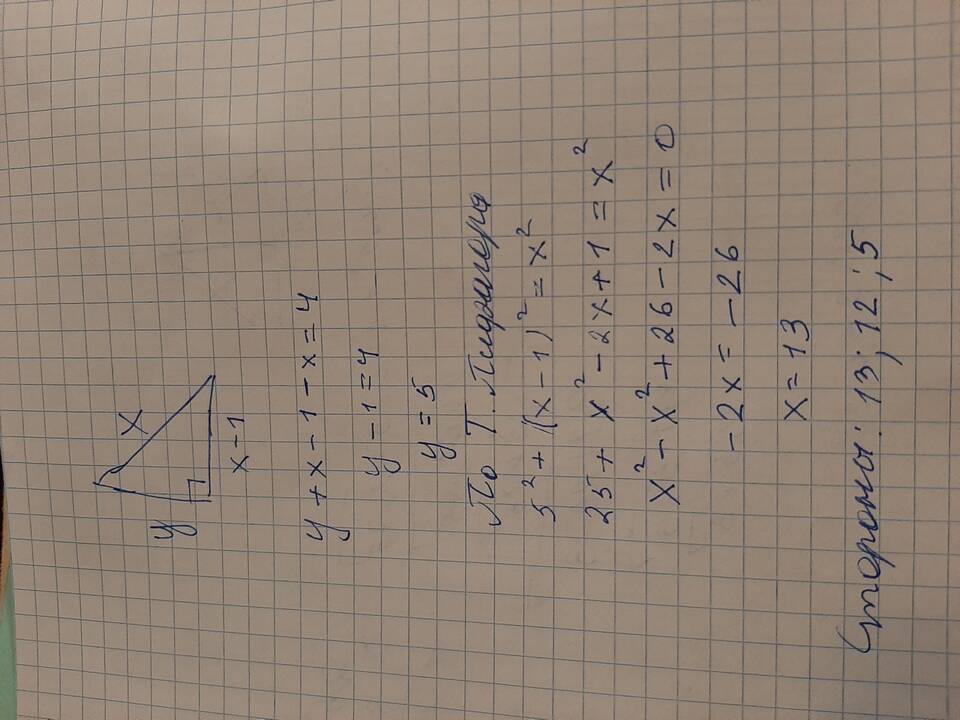 x
y
x-1
y+x-1-x=4
y-1=4
y=5
По Т. Пифагора
5²+(x-1)²=x²
25+x²-2x+1=x²
x²-x²+26-2x=0
-2x=-26
x=13
Стороны: 13; 12; 5